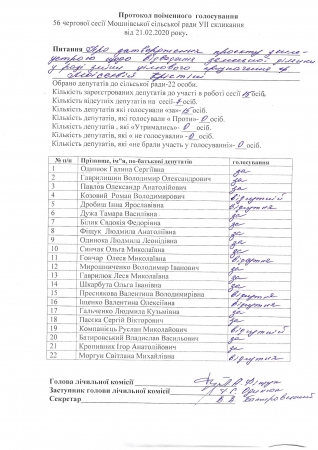 Протокол поіменного голосування
56 чергової сесії Мошнівської сільської ради УІІ скликання
від 21.02.2020 року.
Питання Про затвердження проекту землеустрою щодо відведення земельної ділянки
у разі зміни цільового призначення гр.
Обрано депутатів до сільської ради-22 особи.
Кількість зареєстрованих депутатів до участі в роботі сесії 15 осіб.
Кількість відсутніх депутатів на сесії-7 осіб.
Кількість депутатів які голосували «за»-15 осіб
Кількість депутатів, які голосували « Проти»- 0 осіб.
Кількість депутатів , які «Утримались»- 0 осіб.
Кількість депутатів, які « не голосували» - 0 осіб.
Кількість депутатів, які «не брали участь у голосуванні»-0 осіб.
№ п/п Прізвище, ім"я, по-батькові депутатів голосування
1 Одинюк Галина Сергіївна за
2 Гаврилишин Володимир Олександрович за
3 Павлов Олександр Анатолійович за
4 Козовий Роман Володимирович відсутній
5 Дробиш Інна Ярославівна відсутня
6 Дужа Тамара Василівна за
7 Білик Євдокія Федорівна за
8 Фіщук Людмила Анатоліївна за
9 Одинока Людмила Леонідівна за
10 Синчак Ольга Миколаївна за
11 Гончар Олеся Миколаївна відсутня
12 Мирошниченко Володимир Іванович за
13 Гаврилюк Леся Миколаївна за
14 Шкарбута Ольга Іванівна за
15 Преснякова Валентина Володимирівна відсутня
16 Іщенко Валентина Олексіївна відсутня
17 Гальченко Людмила Кузьмівна за
18 Пасєка Сергій Вікторович за
19 Компанієць Руслан Миколайович відсутній
20 Батировський Владислав Васильович за
21 Кропивник Ігор Анатолійович за
22 Моргун Світлана Михайлівна відсутня
Голова лічильної комісії Л.А. Фіщук
Заступник голови лічильної комісії
Секретар В.В. Батировський